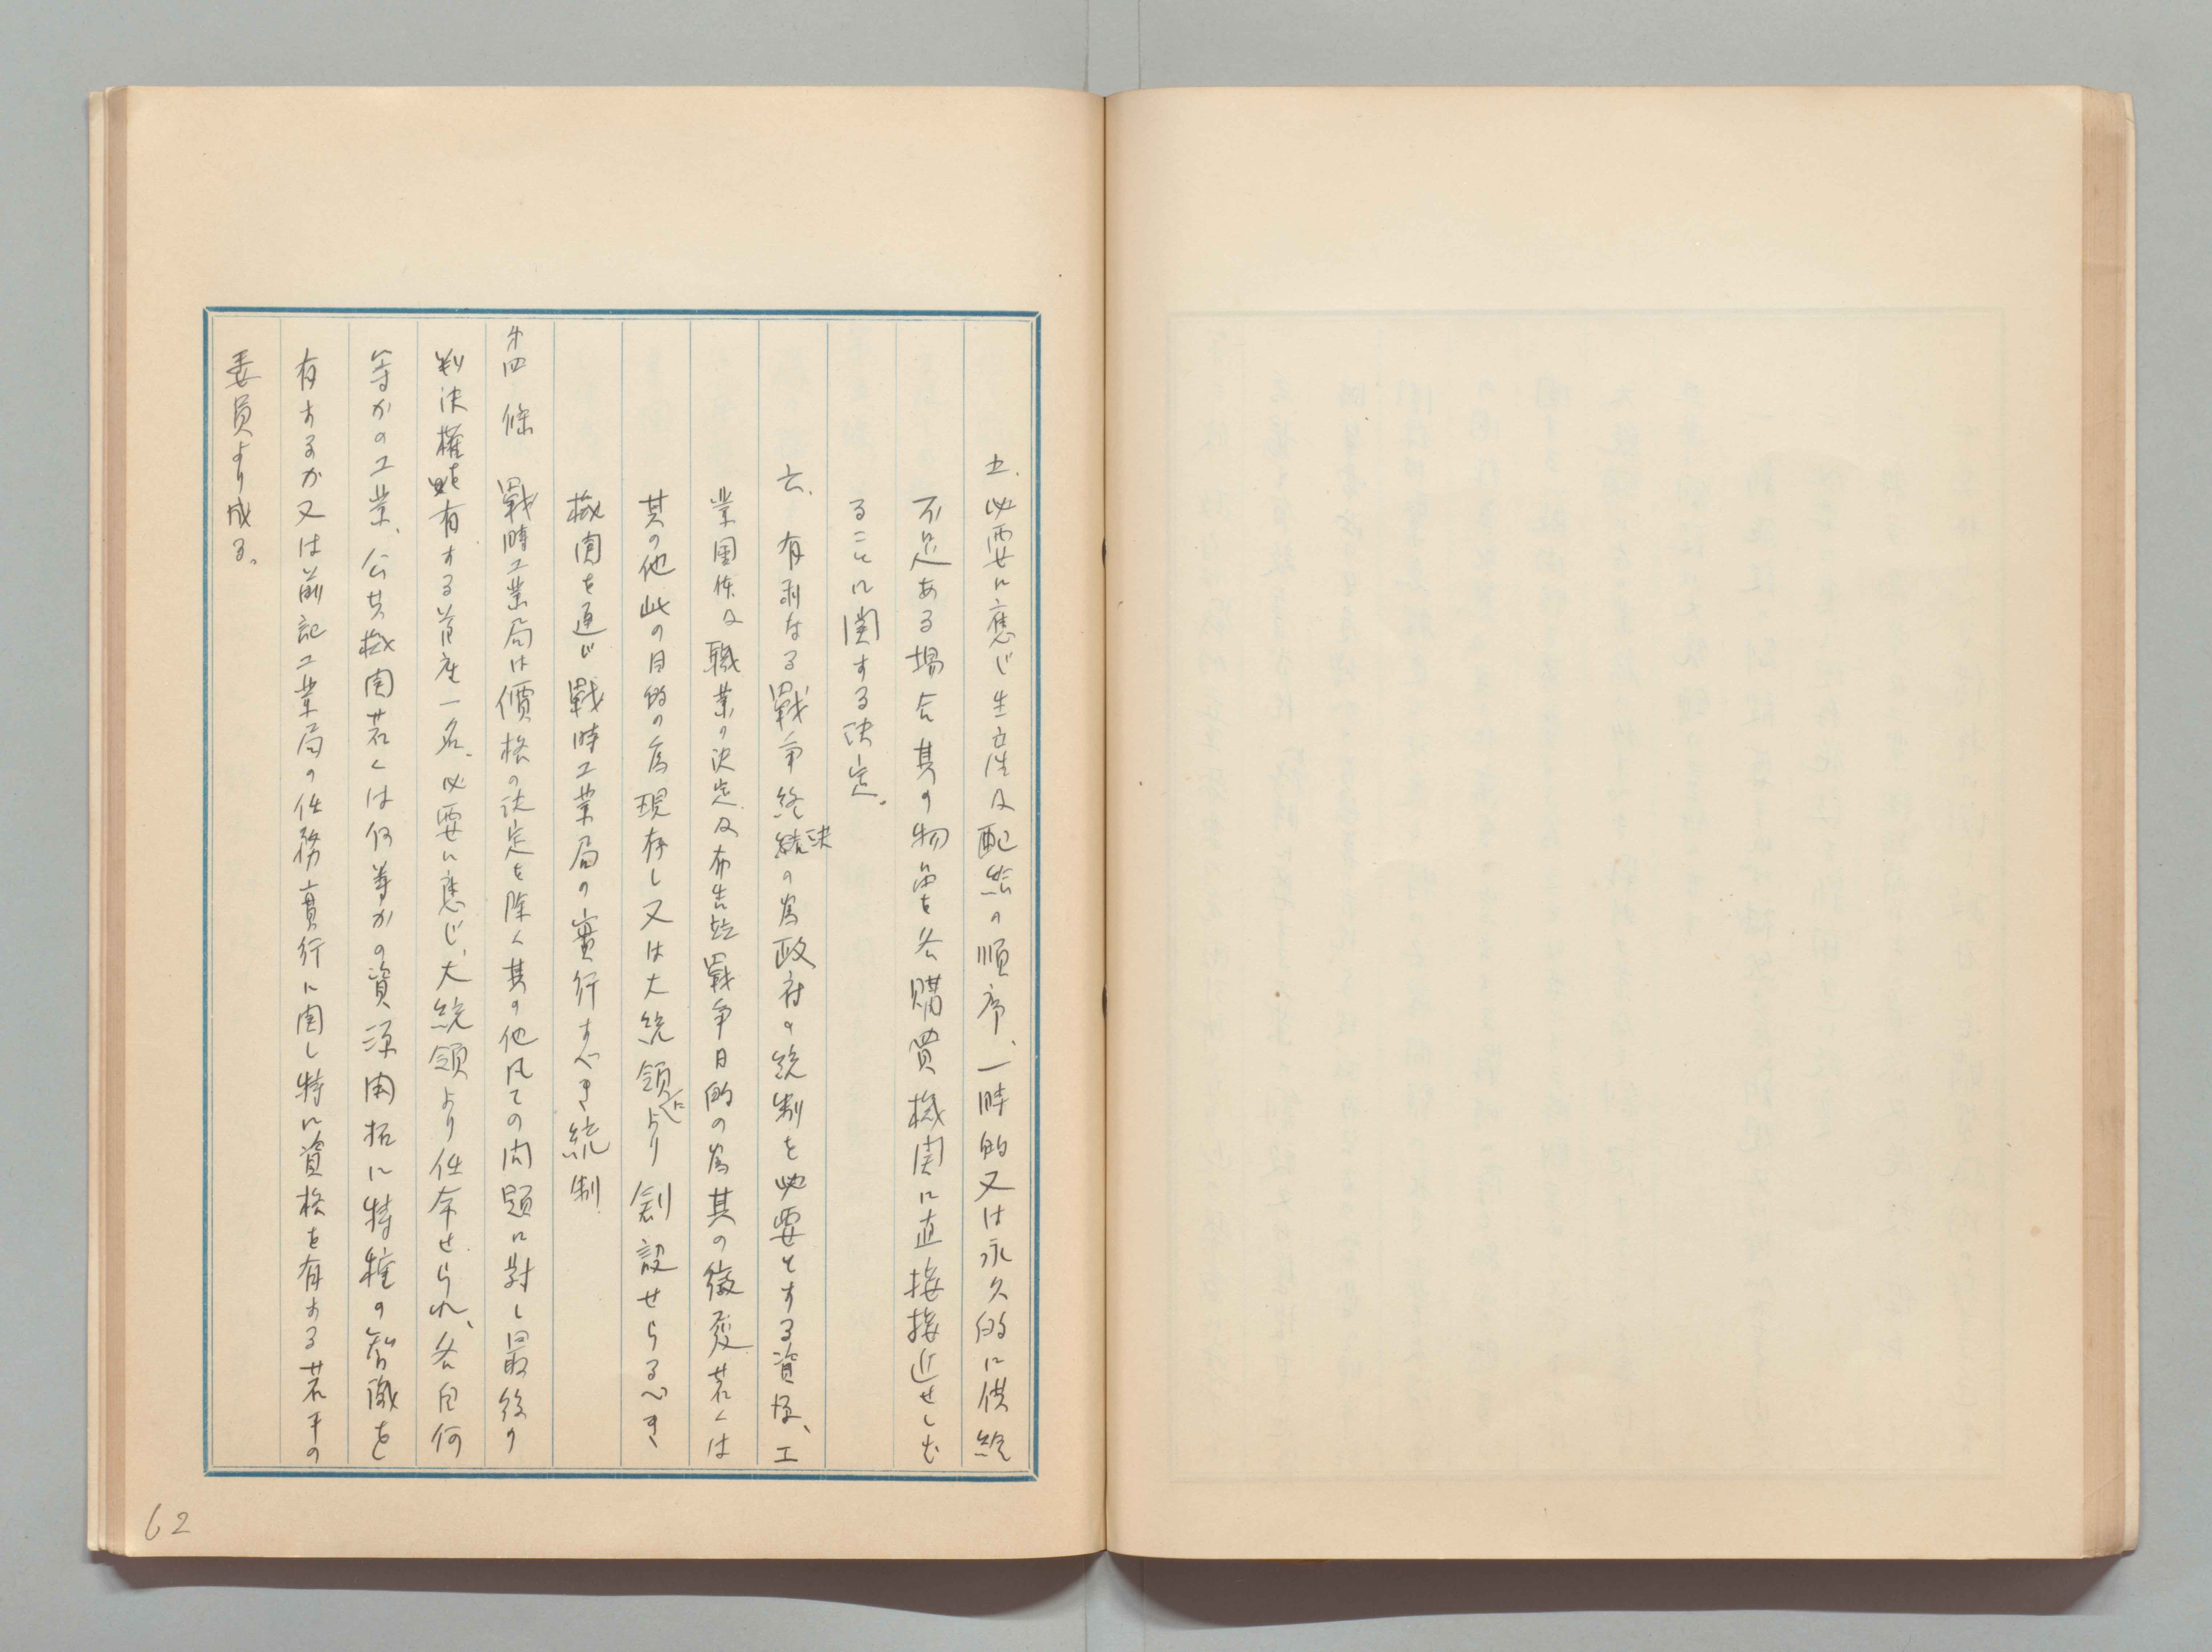 五.必要に應じ生産及配給の順序、一時的又は永久的に供給
不足ある場合其の物資を各購買機関に直接接近せしむ
ることに関する決定。
六.有利なる戰争終結決の為政府の統制を必要とする資源、工
業団体及職業の決定及布告並戰争目的の為其の徴変若くは
其の他此の目的の為現存し又は大統領により創設せらるべき
機関を通じ戰時工業局の實行すべき統制
第四條 戰時工業局は價格の決定を除く其の他凡ての問題に對し最後の
判決権を有する首座一名、必要に應じ、大統領より任命せられ、各自何
等かの工業、公共機関若くは何等かの資源開拓に特種の智識を
有するか又は前記工業局の任務實行に関し特に資格を有する若干の
委員より成る。
62